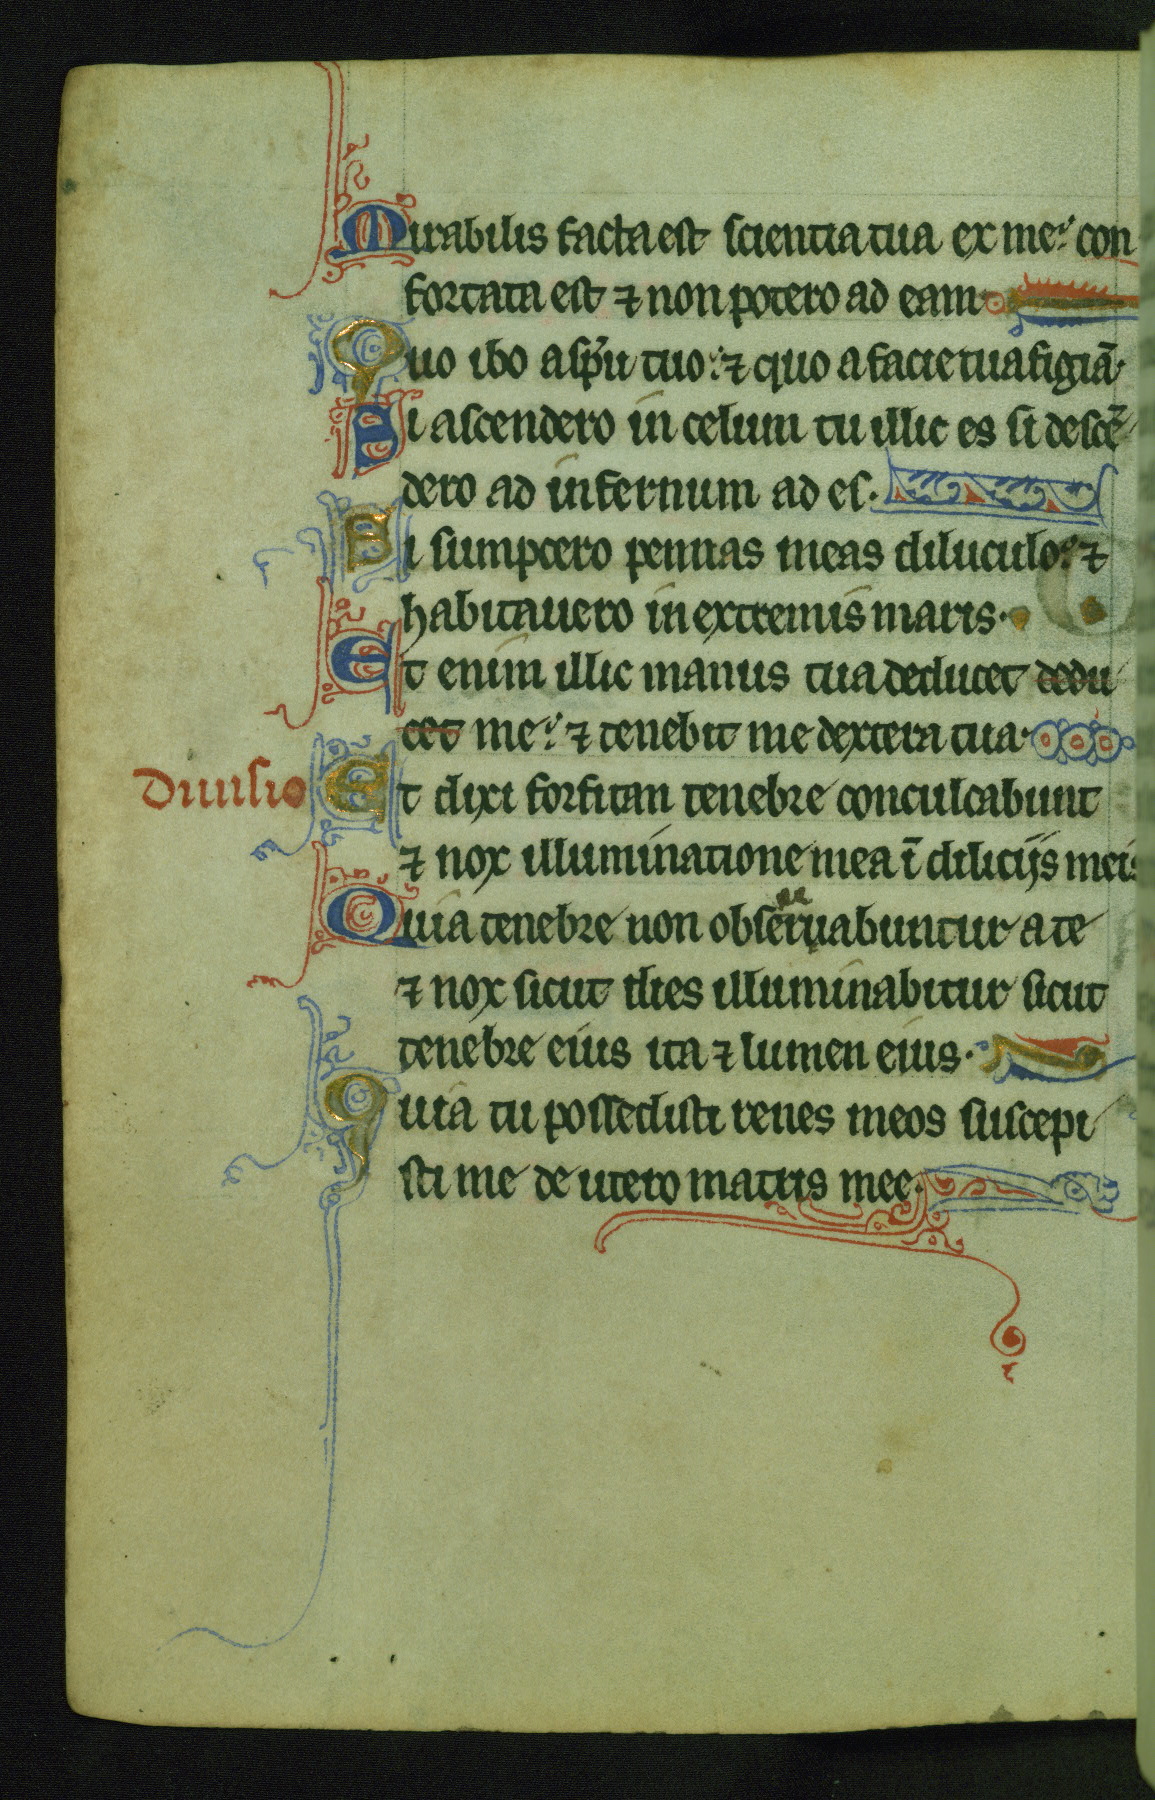 Mirabilis facta est scientia tua ex me: con
fortata est ⁊ non potero ad eam
Quo ibo a sp̄u tuo: ⁊ quo a facie tua figiā.
Si ascendero in celum tu illic es si descē
dero ad infernum ad es.
Si sumptero pennas meas diluculo: ⁊
habitauero in extremis maris.
Et enim illic manus tua deducet dedu
cet me: ⁊ tenebit me dextera tua.
Diuisio
Et dixi forsitan tenebre conculcabunt
⁊ nox illuminatione mea ī dilicijs meis
Quia tenebre non obseruabuntur a te
⁊ nox sicut dies illuminabitur sicut
tenebre eius ita ⁊ lumen eius.
Quia tu possedisti renes meos suscepi
sti me de utero matris mee.